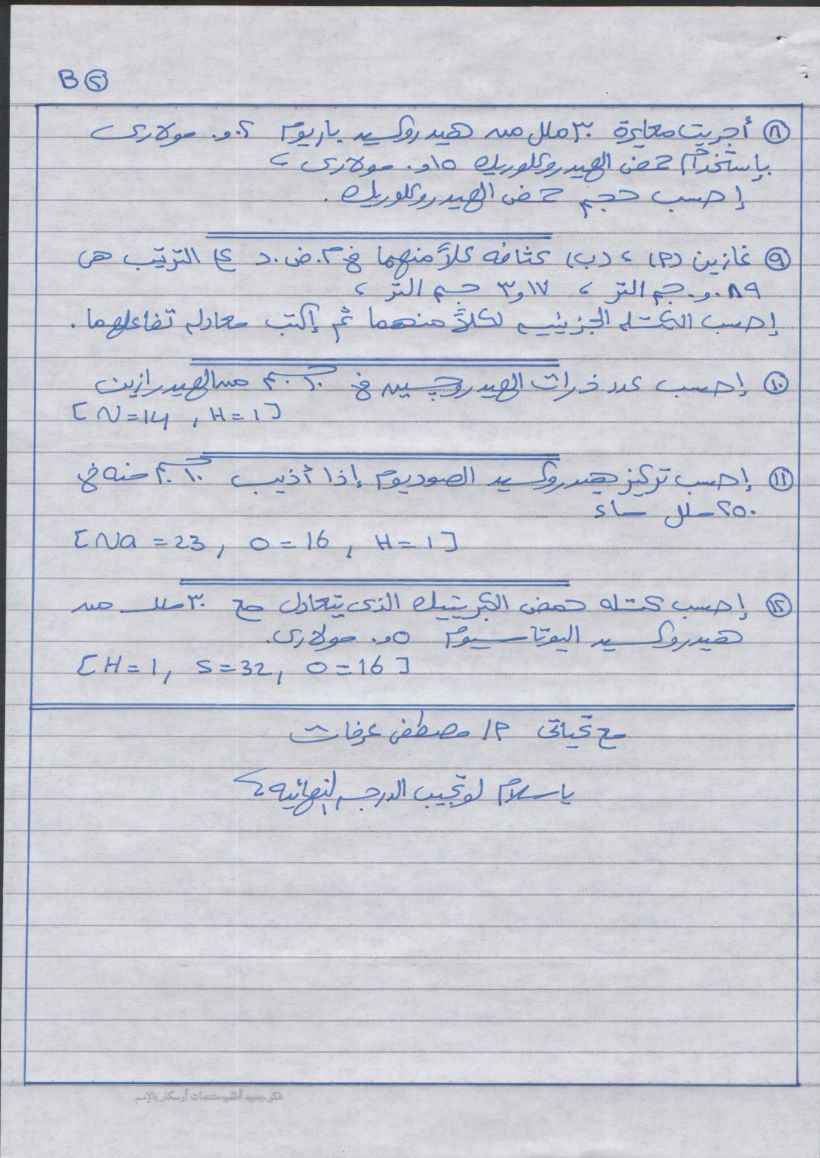 B ②
⑧ أجريت معايرة ٣٠ ملل من هيدروكسيد باريوم ٢و٠ مولارى
بإستخدام حمض الهيدروكلوريك ١٥و٠ مولارى ،
إحسب حجم حمض الهيدروكلوريك .
⑨ غازين (P) ، (ب) كثافه كلاً منهما فى م.ض.د على الترتيب هى
٠٨٩و٠ جم التر ، ١٧و٣ جم التر ،
إحسب الكتله الجزيئيه لكلاً منهما ثم إكتب معادله تفاعلهما .
⑩ إحسب عدد ذرات الهيدروجين فى ١٠ جم من الهيدرازين
[ N=14 , H=1 ]
⑪ إحسب تركيز هيدروكسيد الصوديوم إذا أذيب ١٠ جم منه فى
٢٥٠ ملل ماء
[ Na = 23 , O = 16 , H = 1 ]
⑫ إحسب كتله حمض الكبريتيك الذى يتعادل مع ٣٠ ملل من
هيدروكسيد البوتاسيوم ٥و٠ مولارى.
[ H = 1 , S = 32 , O = 16 ]
مع تحياتى P/ مصطفى عرفات
ياسلام لو تجيب الدرجه النهائيه
منتجات أوسكار بالإسم